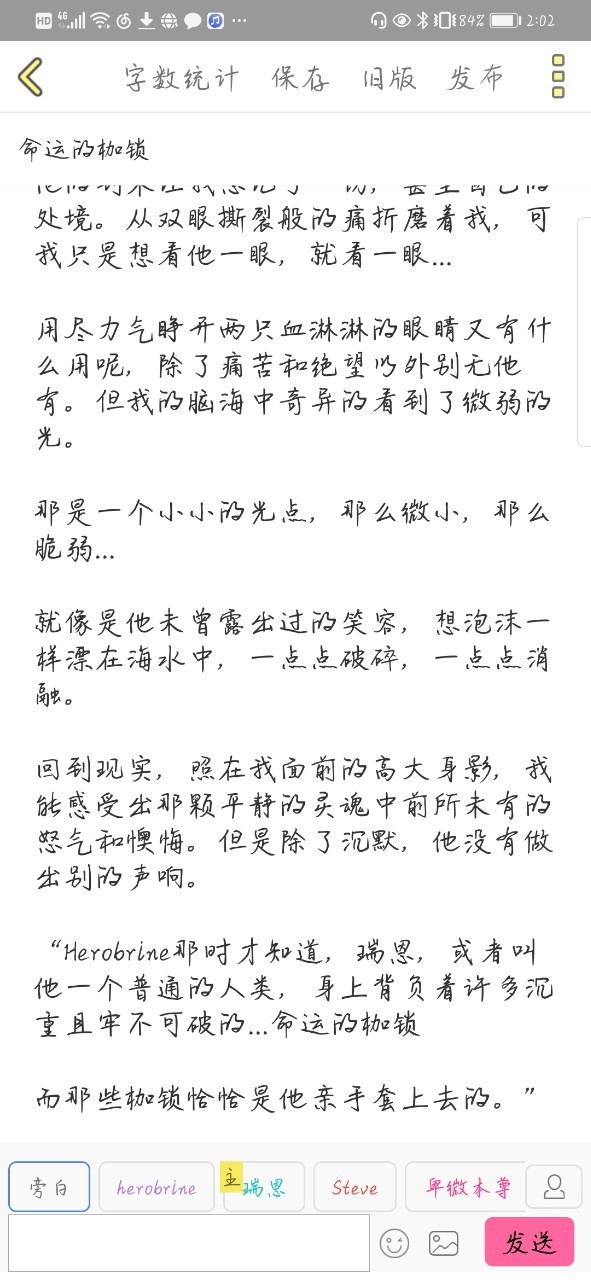 HD 4G 84% 2:02
字数统计 保存 旧版 发布
命运的枷锁
处境。从双眼撕裂般的痛折磨着我，可
我只是想看他一眼，就看一眼...
用尽力气睁开两只血淋淋的眼睛又有什
么用呢，除了痛苦和绝望以外别无他
有。但我的脑海中奇异的看到了微弱的
光。
那是一个小小的光点，那么微小，那么
脆弱...
就像是他未曾露出过的笑容，想泡沫一
样漂在海水中，一点点破碎，一点点消
融。
回到现实，照在我面前的高大身影，我
能感受出那颗平静的灵魂中前所未有的
怒气和懊悔。但是除了沉默，他没有做
出别的声响。
“Herobrine那时才知道，瑞恩，或者叫
他一个普通的人类，身上背负着许多沉
重且牢不可破的...命运的枷锁
而那些枷锁恰恰是他亲手套上去的。”
旁白 herobrine 主 瑞恩 Steve 卑微本尊
发送